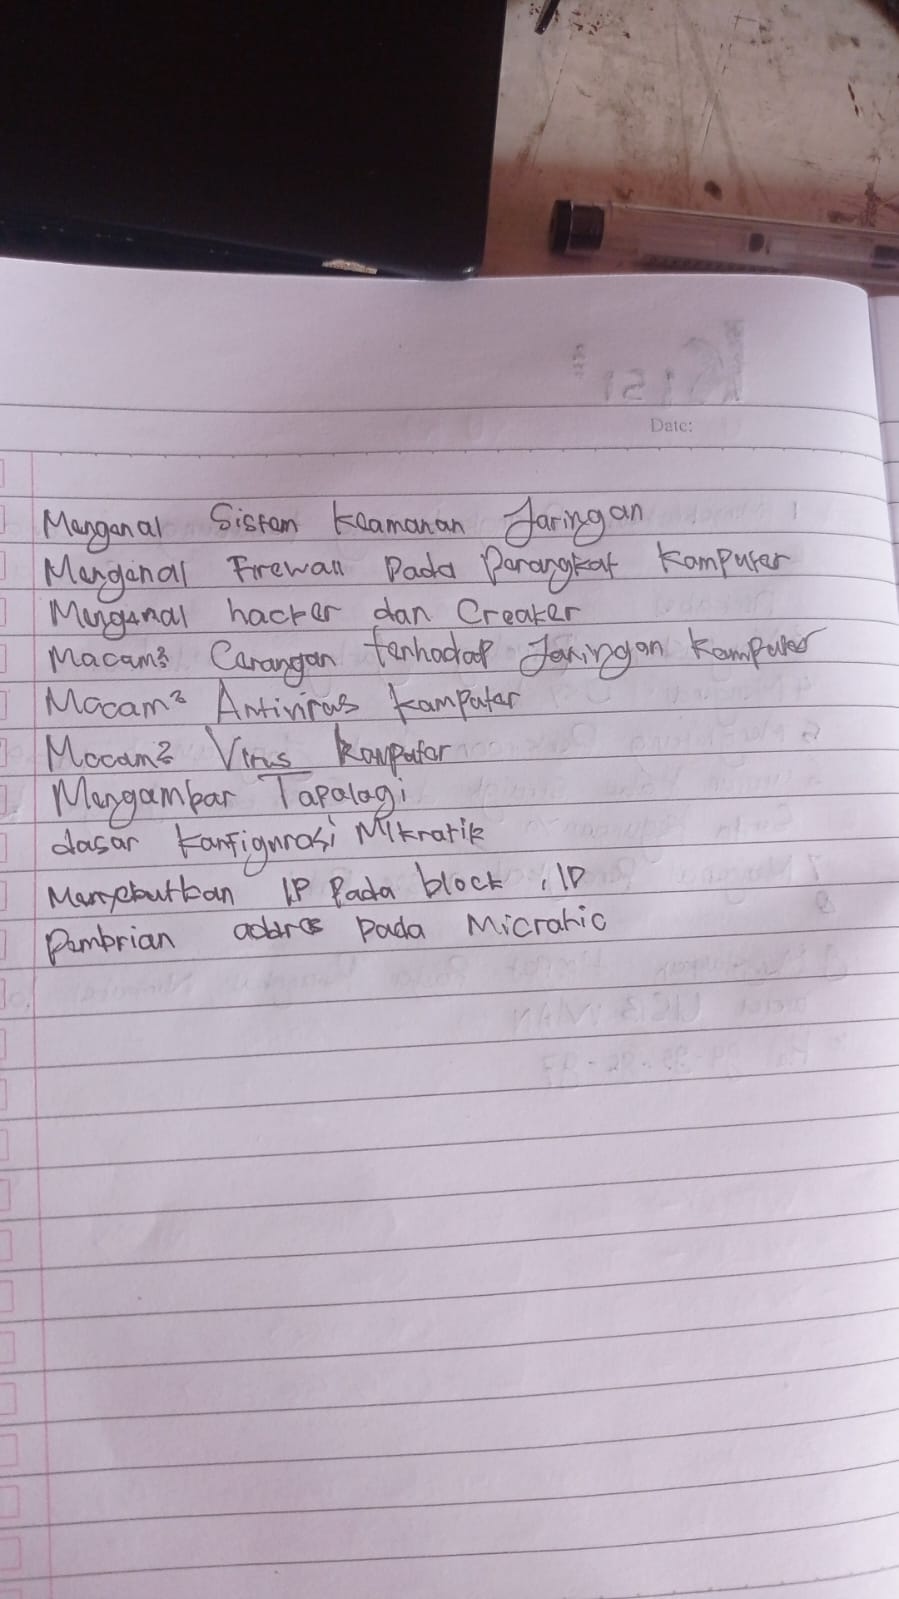 Date:
Mengenal Sistem Keamanan Jaringan
Mengenal Firewall Pada Perangkat Komputer
Mengenal hacker dan Creaker
Macam² Carangan terhadap Jaringan Komputer
Macam² Antivirus Komputer
Macam² Virus Komputer
Mengambar Tapalagi
dasar Konfigurasi Mikratik
Menyebutkan IP Pada block IP
Pembrian addres Pada Micratic